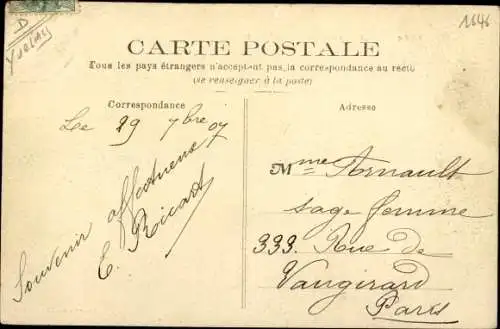 Yvelines
1646
CARTE POSTALE
Tous les pays étrangers n'acceptent pas la correspondance au recto
(se renseigner à la poste)
Correspondance
Lee 29 7bre 07
Souvenir affectueux
E. Ricart
Adresse
Mme Arnault
sage femme
333 Rue de
Vaugirard
Paris